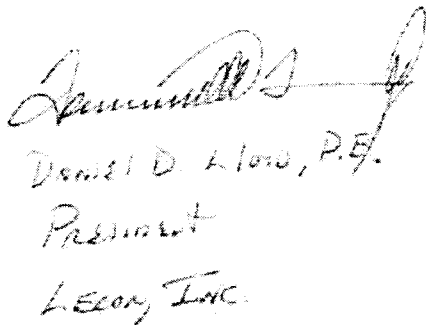 Daniel D. Lloyd, P.E.
President
Lecon, Inc.